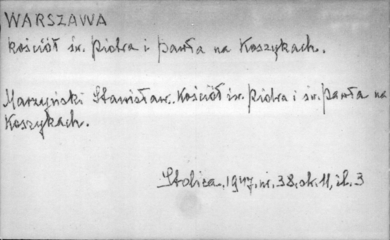 WARSZAWA
kościół św. Piotra i Pawła na Koszykach.
Marzyński Stanisław. Kościół św. Piotra i św. Pawła na
Koszykach.
Stolica, 1947, nr. 38, ok. 11, il. 3